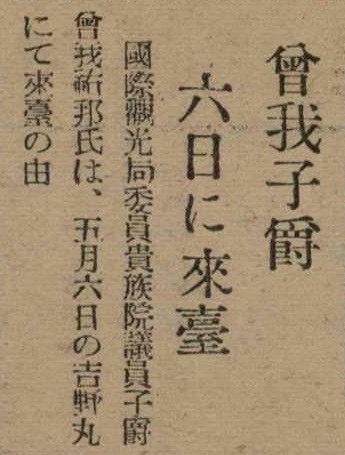 曾我子爵
六日に來臺
國際觀光局委員貴族院議員子爵
曾我祐邦氏は、五月六日の吉野丸
にて來臺の由